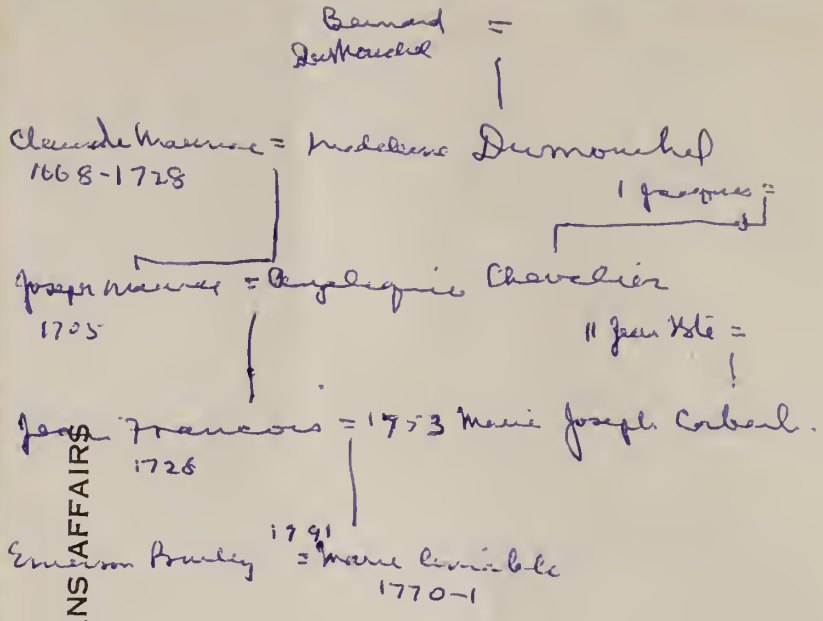 Bernard =
DuMouchel
Claude Maurice = Madeleine Dumouchel
1668-1728
1 Jacques =
Joseph Maurice = Angelique Chevalier
1705
11 Jean Bte =
Jean Francois = 1753 Marie Joseph Corbeil.
1728
1791
Emerson Burley = Marie Amable
1770-1
NS AFFAIRS